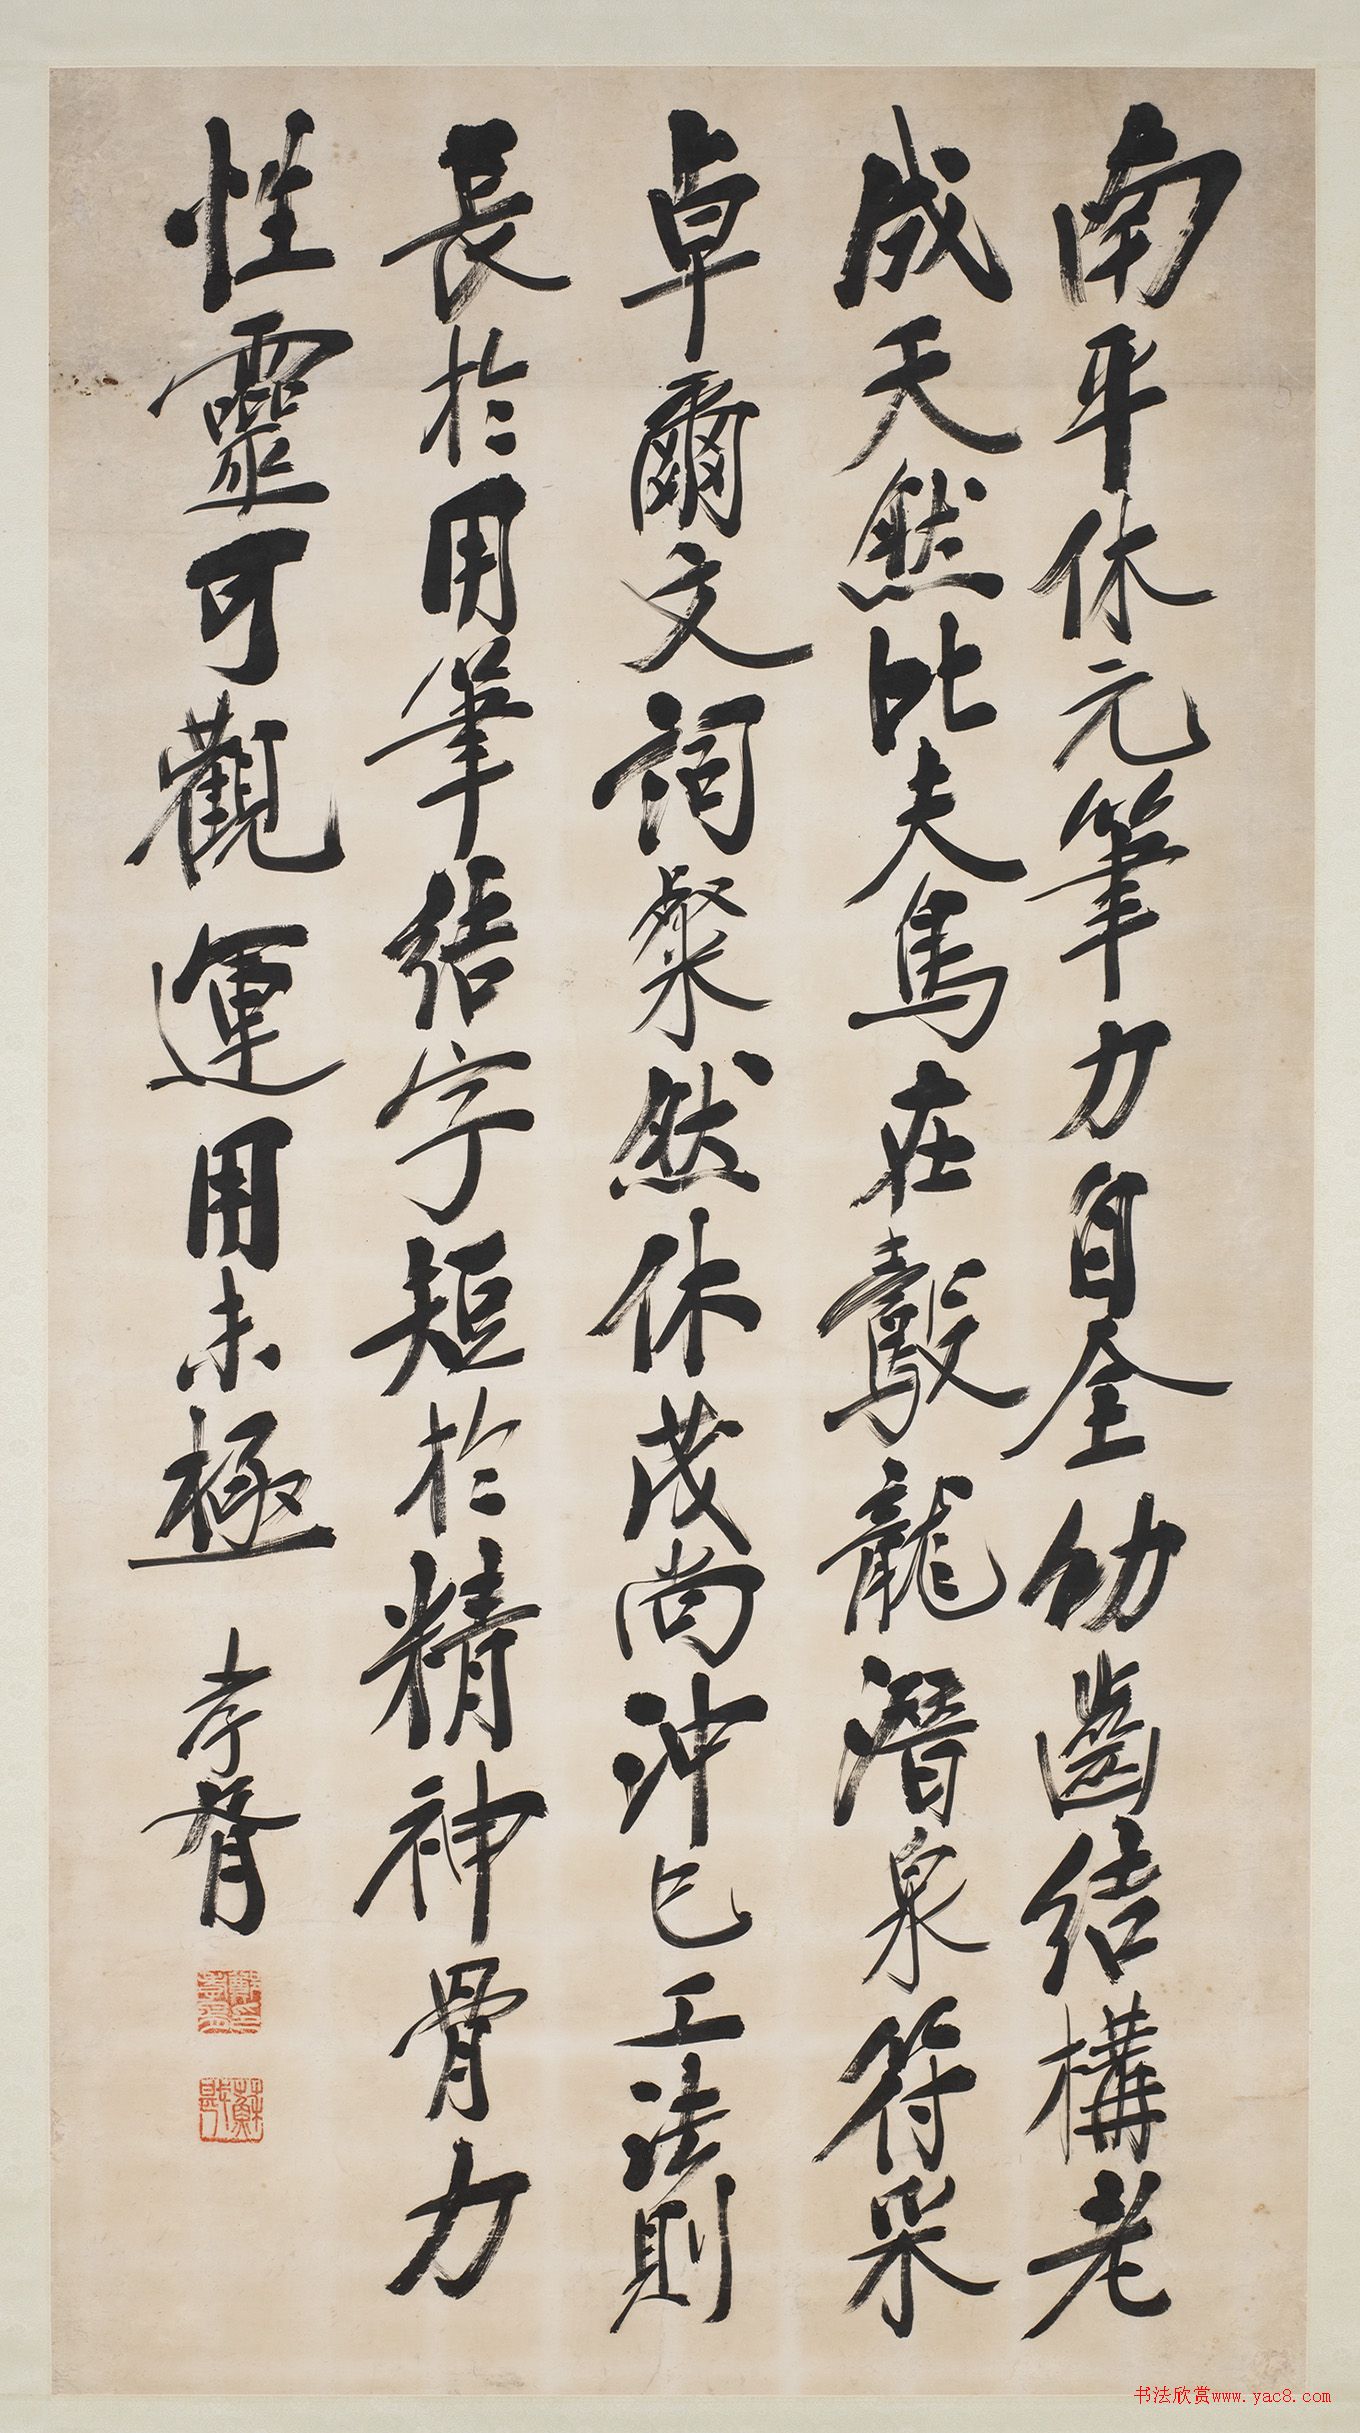 南平休元筆力自全幼齒結構老
成天然比夫馬在鷇龍潛泉符采
卓爾文詞粲然休茂尚沖已工法則
長於用筆結字短於精神骨力
性靈可觀運用未極
孝胥
書法欣赏www.yac8.com